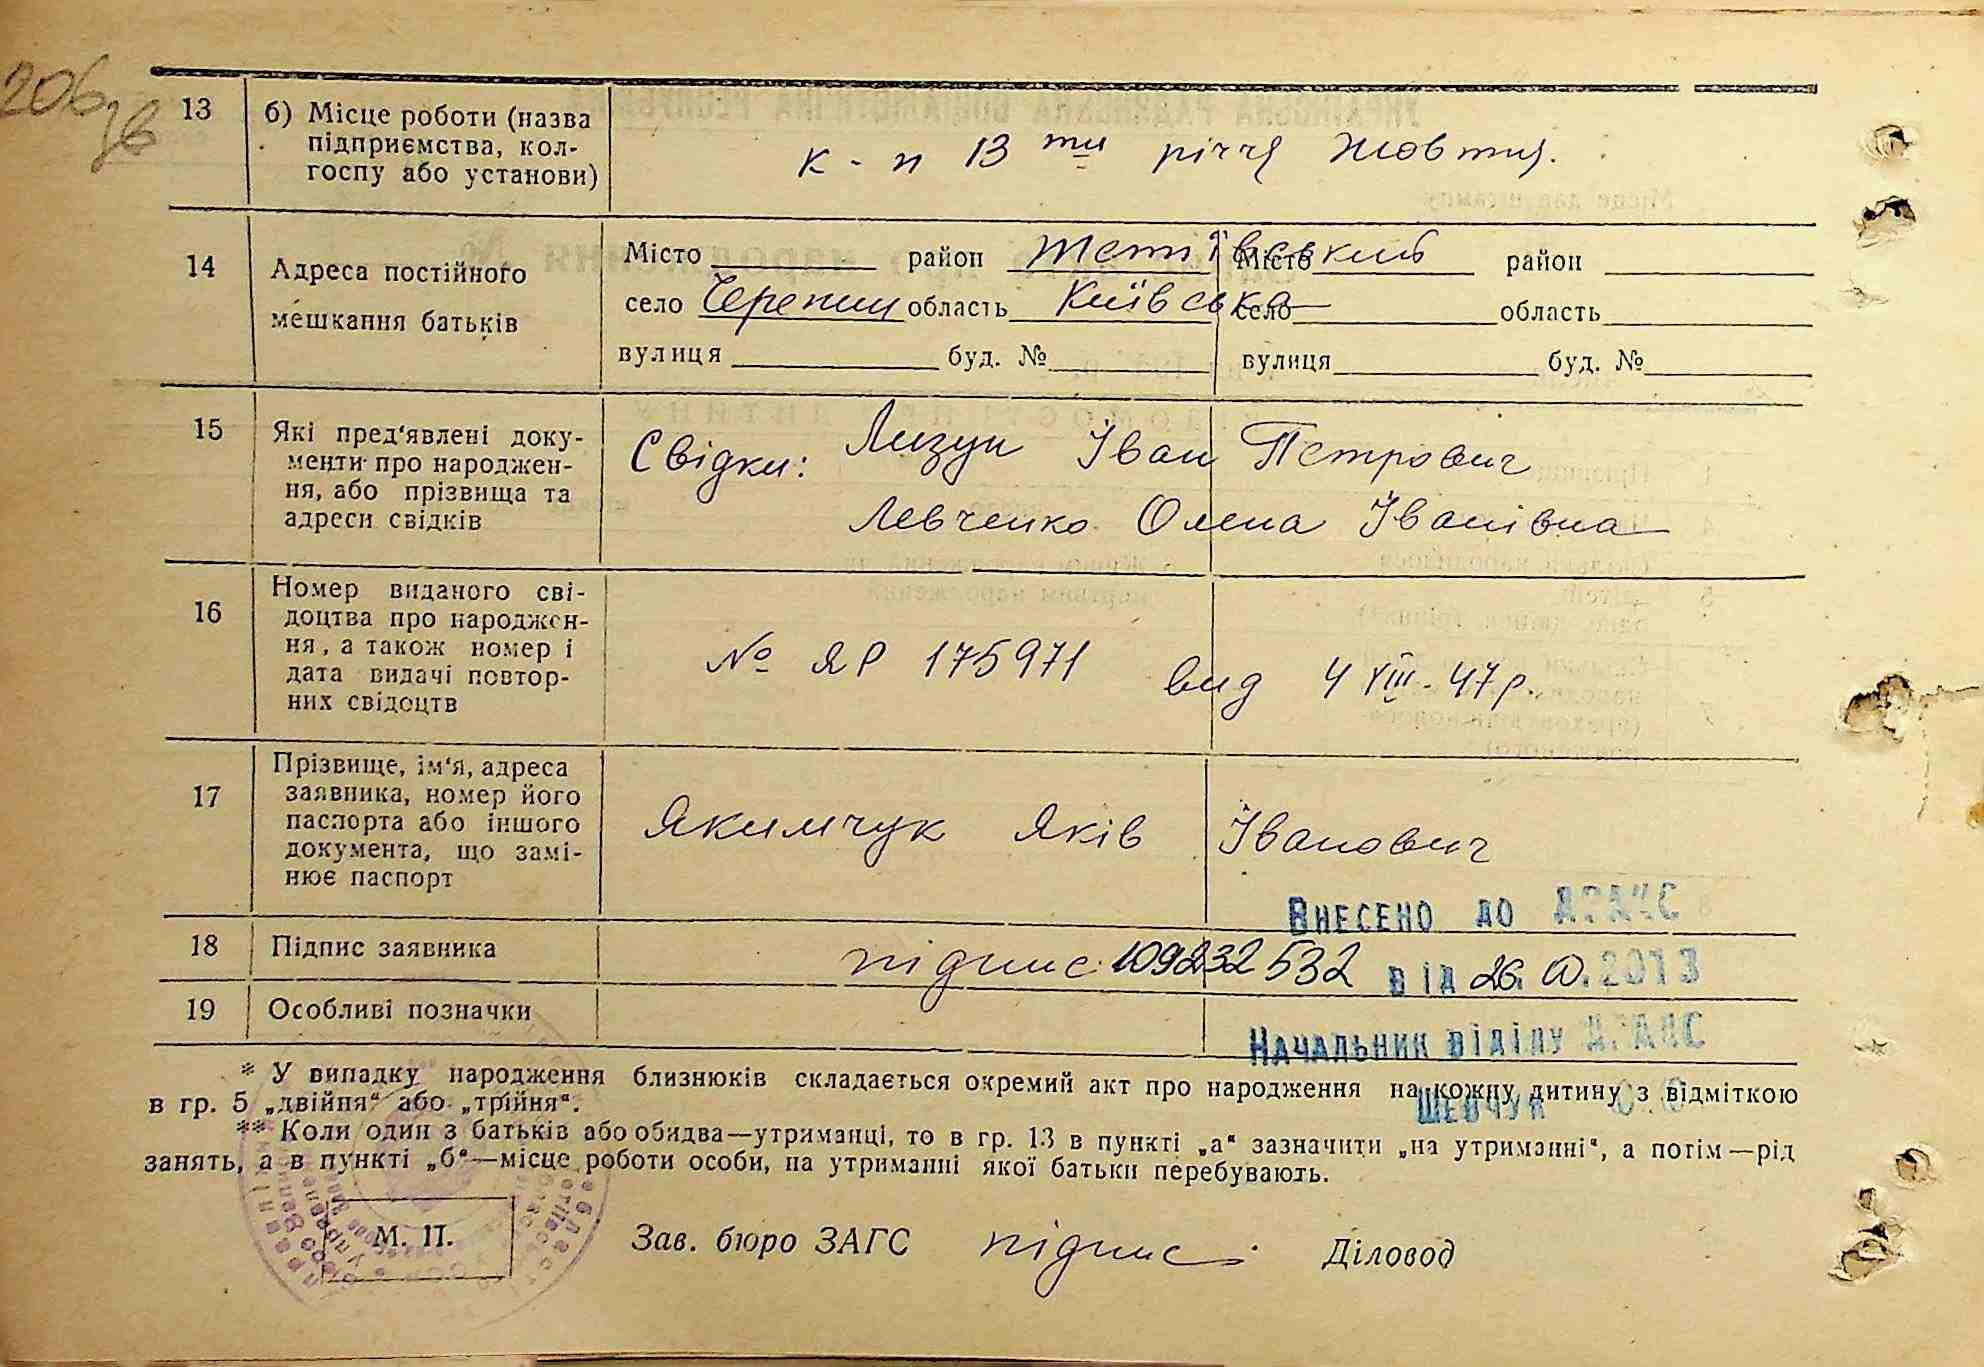 206
зв
13 б) Місце роботи (назва
підприємства, кол-
госпу або установи)
к-п 13 ти річчя Жовтня.
14 Адреса постійного
мешкання батьків
Місто район Тетіївський Місто район
село Черепин область Київська село область
вулиця буд. № вулиця буд. №
15 Які пред'явлені доку-
менти про народжен-
ня, або прізвища та
адреси свідків
Свідки: Лизун Іван Петрович
Левченко Олена Іванівна
16 Номер виданого сві-
доцтва про народжен-
ня, а також номер і
дата видачі повтор-
них свідоцтв
№ ЯР 175971 вид 4 VIII-47р.
17 Прізвище, ім'я, адреса
заявника, номер його
паспорта або іншого
документа, що замі-
нює паспорт
Якимчук Яків Іванович
Внесено до ДРАЦС
18 Підпис заявника
підпис 109232532 від 26. .2013
19 Особливі позначки
Начальник відділу ДРАЦС
* У випадку народження близнюків складається окремий акт про народження на кожну дитину з відміткою
Шевчук
в гр. 5 „двійня“ або „трійня“.
** Коли один з батьків або обидва—утриманці, то в гр. 13 в пункті „а“ зазначити „на утриманні“, а потім—рід
занять, а в пункті „б“—місце роботи особи, на утриманні якої батьки перебувають.
М. П. Зав. бюро ЗАГС підпис Діловод